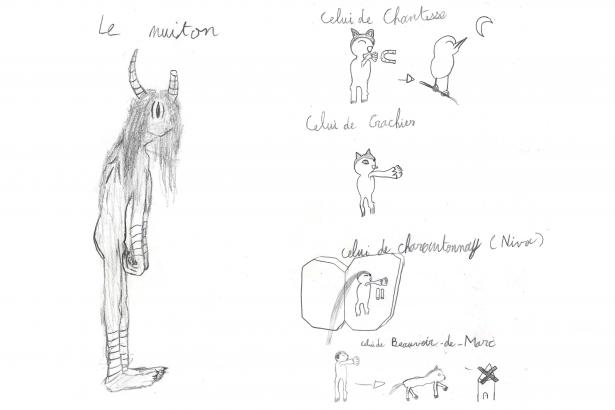 Le nuiton
Celui de Chantesse
Celui de Crachier
celui de charantonnay (Nivo)
celui de Beauvoir-de-Marc